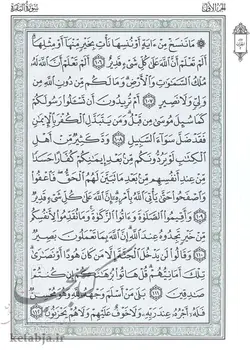 الجزء الأول
سورة البقرة
مَا نَنسَخْ مِنْ ءَايَةٍ أَوْ نُنسِهَا نَأْتِ بِخَيْرٍ مِّنْهَآ أَوْ مِثْلِهَآ
أَلَمْ تَعْلَمْ أَنَّ ٱللَّهَ عَلَىٰ كُلِّ شَىْءٍ قَدِيرٌ ١٠٦ أَلَمْ تَعْلَمْ أَنَّ ٱللَّهَ لَهُۥ
مُلْكُ ٱلسَّمَٰوَٰتِ وَٱلْأَرْضِ وَمَا لَكُم مِّن دُونِ ٱللَّهِ مِن
وَلِىٍّ وَلَا نَصِيرٍ ١٠٧ أَمْ تُرِيدُونَ أَن تَسْـَٔلُوا۟ رَسُولَكُمْ
كَمَا سُئِلَ مُوسَىٰ مِن قَبْلُ وَمَن يَتَبَدَّلِ ٱلْكُفْرَ بِٱلْإِيمَٰنِ
فَقَدْ ضَلَّ سَوَآءَ ٱلسَّبِيلِ ١٠٨ وَدَّ كَثِيرٌ مِّنْ أَهْلِ
ٱلْكِتَٰبِ لَوْ يَرُدُّونَكُم مِّنۢ بَعْدِ إِيمَٰنِكُمْ كُفَّارًا حَسَدًا
مِّنْ عِندِ أَنفُسِهِم مِّنۢ بَعْدِ مَا تَبَيَّنَ لَهُمُ ٱلْحَقُّ فَٱعْفُوا۟
وَٱصْفَحُوا۟ حَتَّىٰ يَأْتِىَ ٱللَّهُ بِأَمْرِهِۦٓ إِنَّ ٱللَّهَ عَلَىٰ كُلِّ شَىْءٍ قَدِيرٌ
١٠٩ وَأَقِيمُوا۟ ٱلصَّلَوٰةَ وَءَاتُوا۟ ٱلزَّكَوٰةَ وَمَا تُقَدِّمُوا۟ لِأَنفُسِكُم
مِّنْ خَيْرٍ تَجِدُوهُ عِندَ ٱللَّهِ إِنَّ ٱللَّهَ بِمَا تَعْمَلُونَ بَصِيرٌ
١١٠ وَقَالُوا۟ لَن يَدْخُلَ ٱلْجَنَّةَ إِلَّا مَن كَانَ هُودًا أَوْ نَصَٰرَىٰ
تِلْكَ أَمَانِيُّهُمْ قُلْ هَاتُوا۟ بُرْهَٰنَكُمْ إِن كُنتُمْ
صَٰدِقِينَ ١١١ بَلَىٰ مَنْ أَسْلَمَ وَجْهَهُۥ لِلَّهِ وَهُوَ مُحْسِنٌ
فَلَهُۥٓ أَجْرُهُۥ عِندَ رَبِّهِۦ وَلَا خَوْفٌ عَلَيْهِمْ وَلَا هُمْ يَحْزَنُونَ ١١٢
ketabja.ir